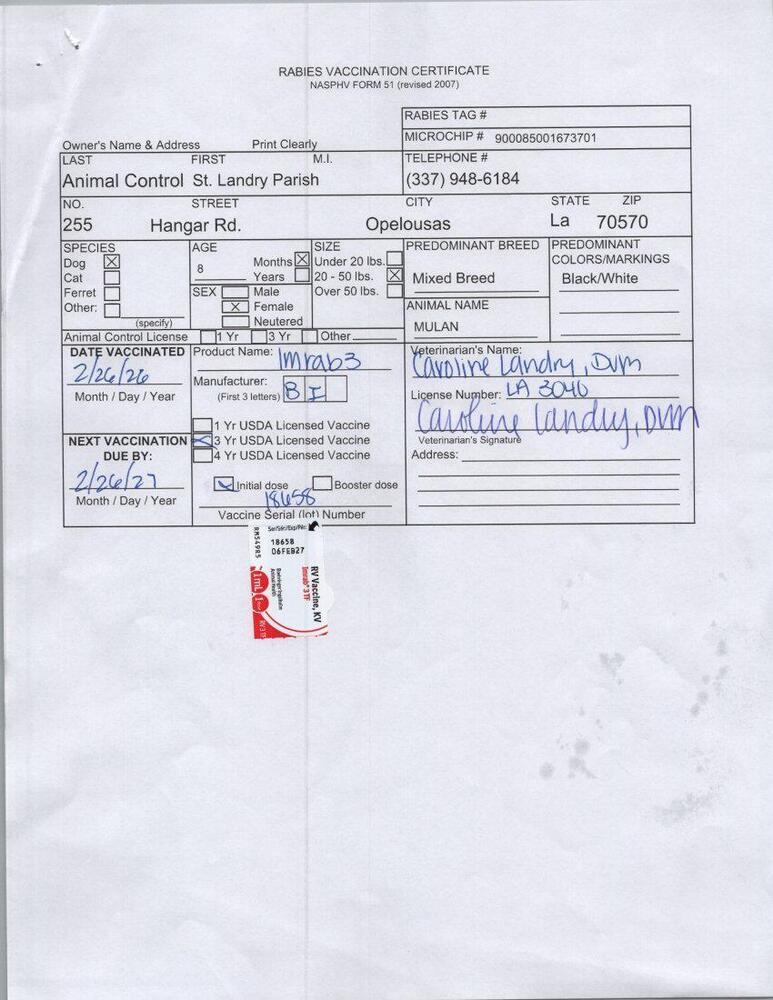 RABIES VACCINATION CERTIFICATE
NASPHV FORM 51 (revised 2007)
RABIES TAG #
Owner's Name & Address Print Clearly
MICROCHIP # 900085001673701
LAST FIRST M.I. TELEPHONE #
Animal Control St. Landry Parish (337) 948-6184
NO. STREET CITY STATE ZIP
255 Hangar Rd. Opelousas La 70570
SPECIES
Dog ☒
Cat ☐
Ferret ☐
Other: ☐
(specify)
AGE
8 Months ☒
Years ☐
SEX ☐ Male
☒ Female
☐ Neutered
SIZE
Under 20 lbs. ☐
20 - 50 lbs. ☒
Over 50 lbs. ☐
PREDOMINANT BREED
Mixed Breed
ANIMAL NAME
MULAN
PREDOMINANT
COLORS/MARKINGS
Black/White
Animal Control License ☐ 1 Yr ☐ 3 Yr ☐ Other
DATE VACCINATED
2/26/26
Month / Day / Year
NEXT VACCINATION
DUE BY:
2/26/27
Month / Day / Year
Product Name: Imrab3
Manufacturer:
(First 3 letters) B I
1 Yr USDA Licensed Vaccine
3 Yr USDA Licensed Vaccine
4 Yr USDA Licensed Vaccine
Initial dose Booster dose
18658
Vaccine Serial (lot) Number
Veterinarian's Name:
Caroline Landry, DVM
License Number: LA 3040
Caroline Landry, DVM
Veterinarian's Signature
Address:
18658
06FEB27
RM549R5
RV Vaccine, KV
Imrab® 3 TF
Boehringer Ingelheim
1mL
RV 3 TF